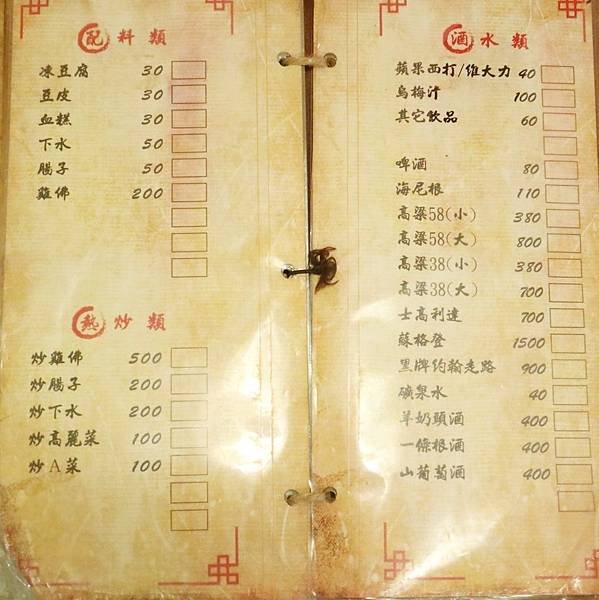 配料類
凍豆腐 30
豆皮 30
血糕 30
下水 50
腸子 50
雞佛 200
熱炒類
炒雞佛 500
炒腸子 200
炒下水 200
炒高麗菜 100
炒A菜 100
酒水類
蘋果西打/維大力 40
烏梅汁 100
其它飲品 60
啤酒 80
海尼根 110
高梁58(小) 380
高梁58(大) 800
高梁38(小) 380
高梁38(大) 700
士高利達 700
蘇格登 1500
黑牌約翰走路 900
礦泉水 40
羊奶頭酒 400
一條根酒 400
山葡萄酒 400